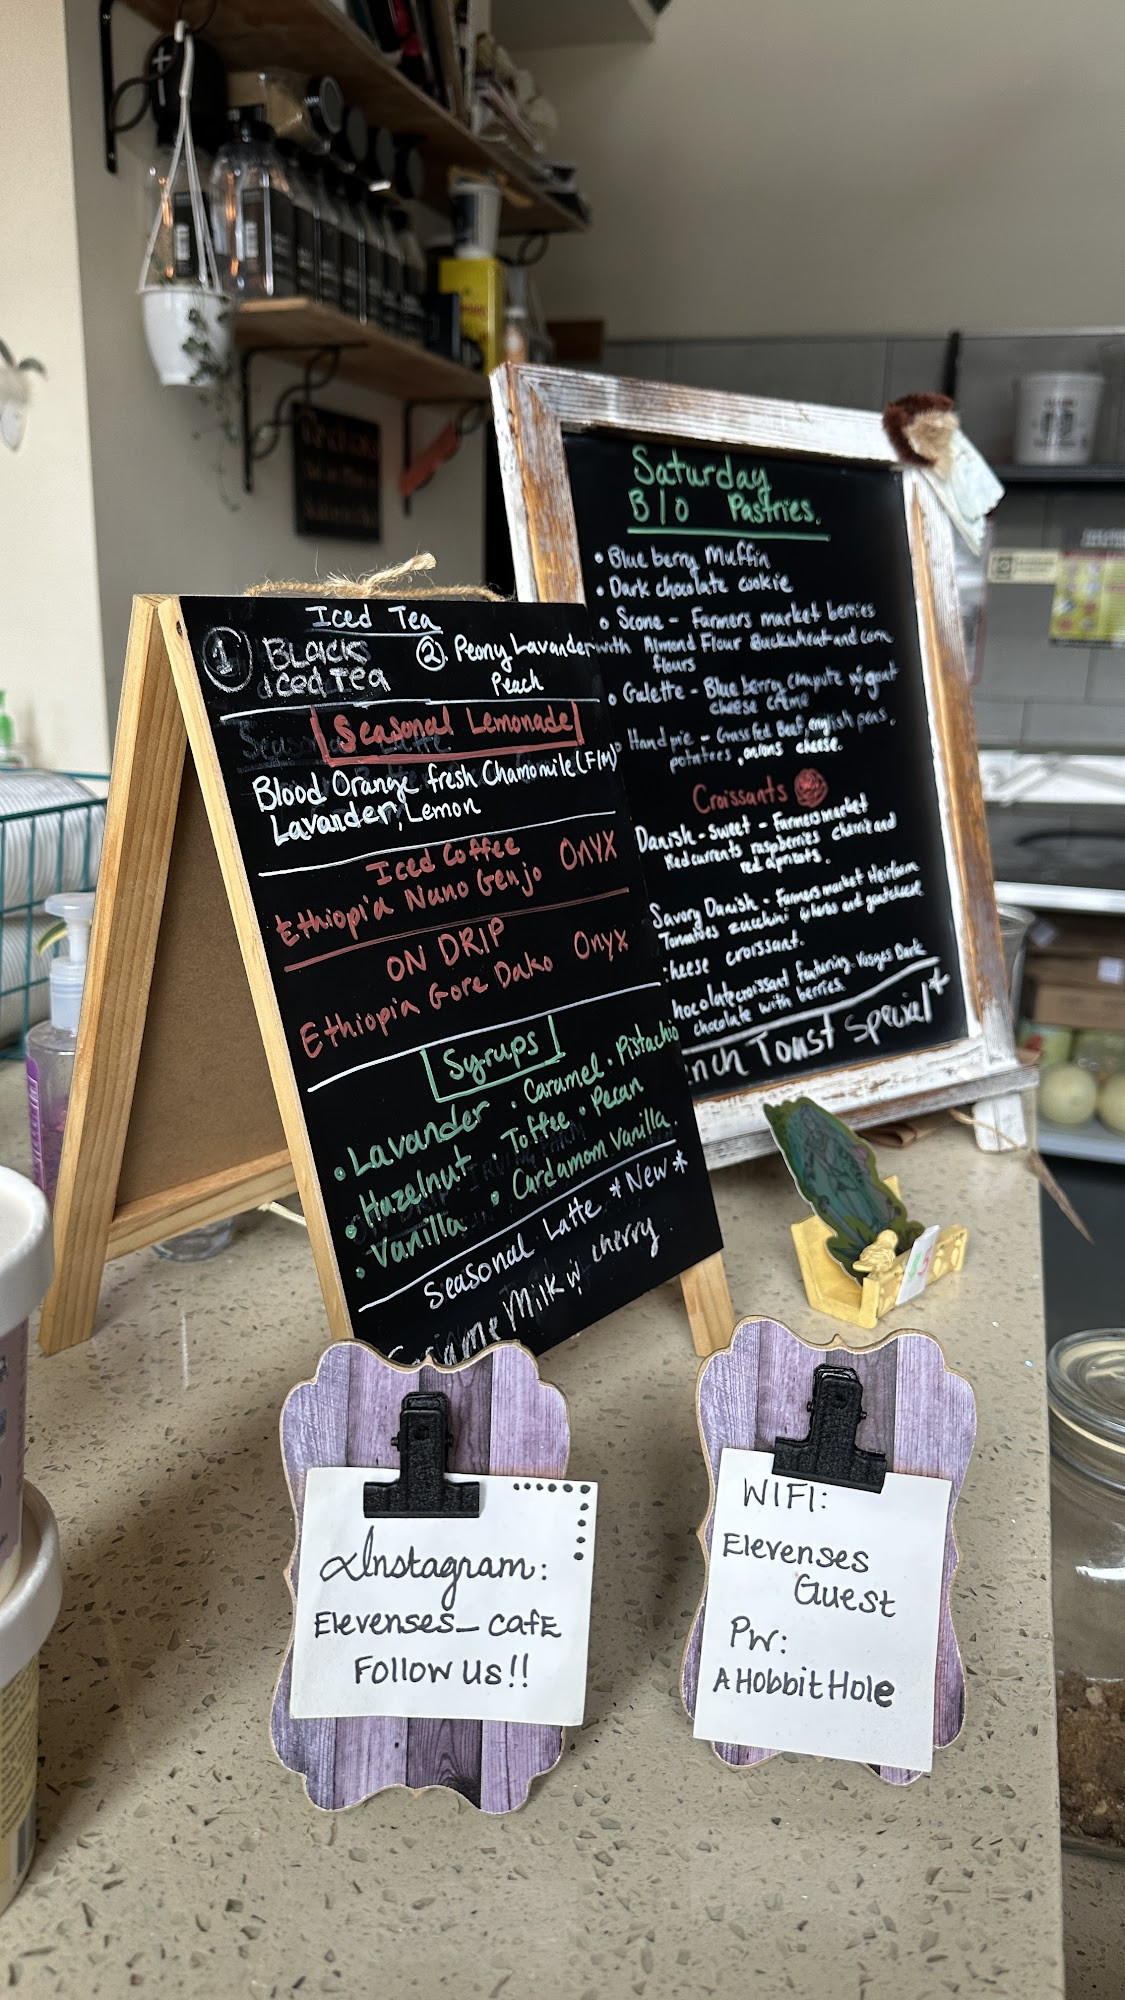 Iced Tea
① BLACK
iced TEA
②. Peony Lavander
Peach
Seasonal Lemonade
Blood Orange fresh Chamomile (F/M)
Lavander, Lemon
Iced Coffee
Ethiopia Nano Genjo ONYX
ON DRIP
Ethiopia Gore Dako Onyx
Syrups
• Lavander • Caramel • Pistachio
• Hazelnut • Toffee • Pecan
• Vanilla • Cardamom Vanilla.
Seasonal Latte *New*
Milk w/ cherry
Saturday
B/O Pastries.
• Blueberry Muffin
• Dark chocolate cookie
• Scone - Farmers market berries
with Almond Flour Buckwheat and corn
flours
• Galette - Blueberry compute w/ goat
cheese crème
• Hand pie - Grassfed Beef, english peas,
potatoes, onions cheese.
Croissants
Danish - Sweet - Farmers market
Red currents raspberries cherries and
red apricots.
Savory Danish - Farmers market Heirloom
Tomatoes zucchini herbs and goat cheese
heese croissant.
hocolate croissant featuring Vosges Dark
chocolate with berries
nch Toast Special*
Instagram:
Elevenses_cafE
Follow us!!
WIFI:
Elevenses
Guest
Pw:
AHobbitHole